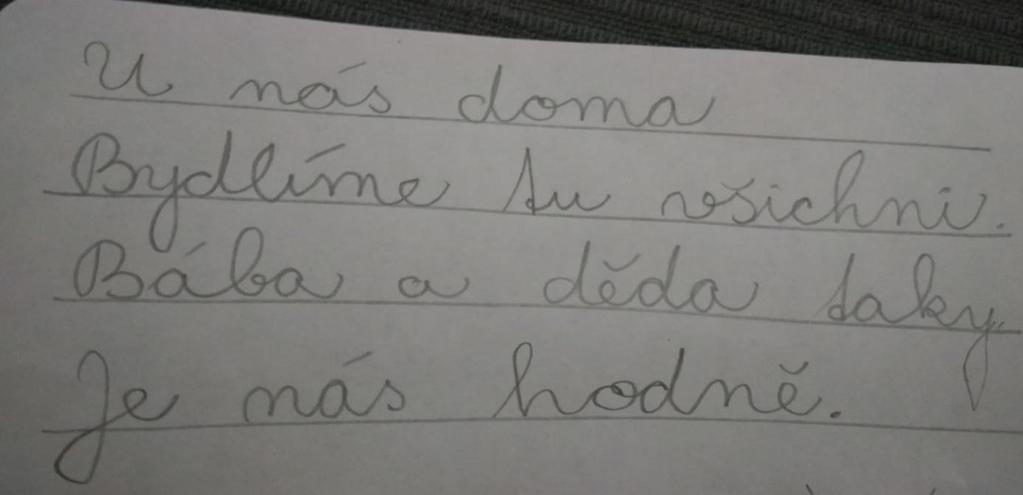 U nás doma
Bydlíme tu všichni.
Bába a děda taky.
Je nás hodně.